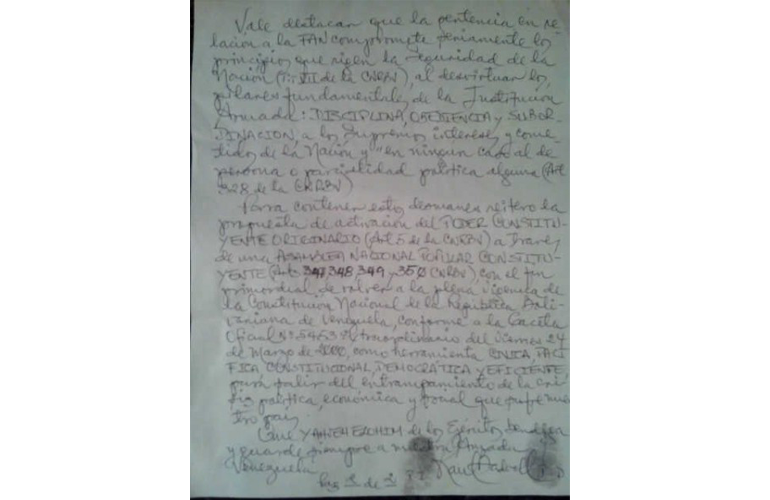 Vale destacar que la sentencia en re-
lación a la FAN compromete seriamente los
principios que rigen la Seguridad de la
Nación (Tit VII de la CNRBV), al desvirtuar los
pilares fundamentales de la Institución
Armada: DISCIPLINA, OBEDIENCIA y SUBOR-
DINACION, a los Supremos intereses y come-
tidos de la Nación y "en ningún caso al de
persona o parcialidad política alguna (Art
328 de la CNRBV)
Para contener estos desmanes reitero la
propuesta de activación del PODER CONSTITU-
YENTE ORIGINARIO (Art 5 de la CNRBV) a través
de una ASAMBLEA NACIONAL POPULAR CONSTITU-
YENTE (Arts 347, 348, 349 y 350 CNRBV) con el fin
primordial de volver a la plena vigencia de
la Constitución Nacional de la República Boli-
variana de Venezuela, conforme a la Gaceta
Oficial Nº 5453 Extraordinario del Viernes 24
de Marzo de 2000, como herramienta UNICA, PACI
FICA, CONSTITUCIONAL, DEMOCRATICA Y EFICIENTE,
para salir del entrampamiento de la cri-
sis política, económica y social que sufre nues
tro país
Que YAHWEH ELOHIM de los Ejércitos bendiga
y guarde siempre a nuestra Armada
Venezuela
Raúl
Pag 3 de 3